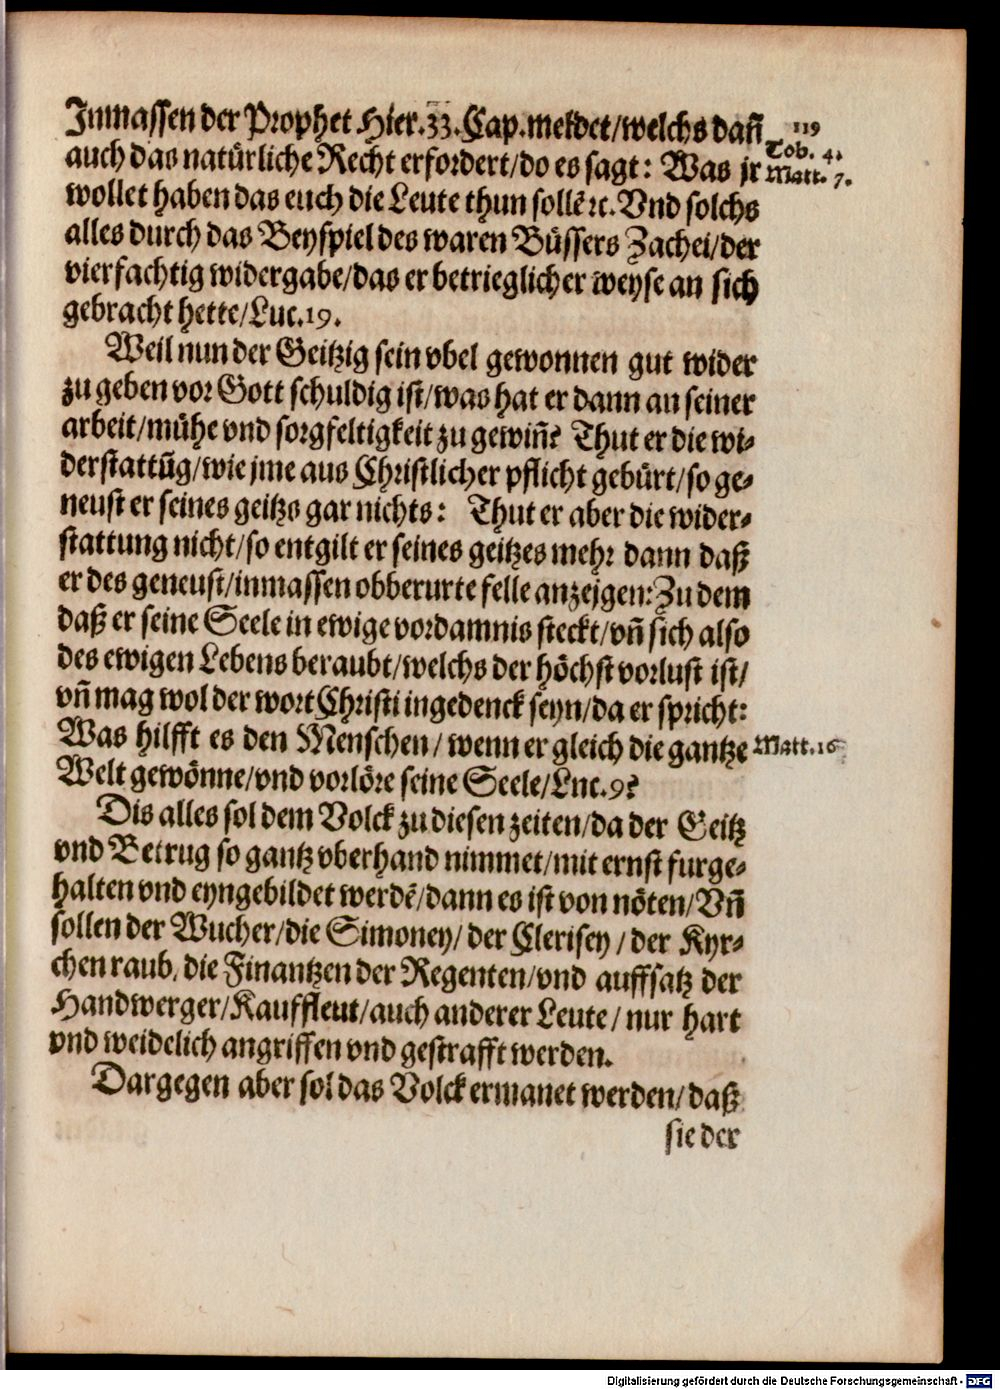 Inmassen der Prophet Hier.33.Cap.meldet/welchs dañ
119
auch das natürliche Recht erfordert/do es sagt: Was jr
Tob. 4.
Matt. 7.
wollet haben das euch die Leute thun sollẽ ⁊c. Vnd solchs
alles durch das Beyspiel des waren Büssers Zachei/der
vierfachtig widergabe/das er betrieglicher weyse an sich
gebracht hette/Luc.19.
Weil nun der Geitzig sein vbel gewonnen gut wider
zu geben vor Gott schuldig ist/was hat er dann an seiner
arbeit/mühe vnd sorgfeltigkeit zu gewiñ? Thut er die wi-
derstattũg/wie jme aus Christlicher pflicht gebürt/so ge-
neust er seines geitzs gar nichts: Thut er aber die wider-
stattung nicht/so entgilt er seines geitzes mehr dann daß
er des geneust/inmassen obberurte felle anzeigen: Zu dem
daß er seine Seele in ewige vordamnis steckt/vñ sich also
des ewigen Lebens beraubt/welchs der höchst vorlust ist/
vñ mag wol der wort Christi ingedenck seyn/da er spricht:
Was hilfft es den Menschen/ wenn er gleich die gantze
Matt. 16
Welt gewönne/vnd vorlöre seine Seele/Luc.9?
Dis alles sol dem Volck zu diesen zeiten/da der Geitz
vnd Betrug so gantz vberhand nimmet/mit ernst furge-
halten vnd eyngebildet werdẽ/dann es ist von nöten/Vñ
sollen der Wucher/die Simoney/ der Clerisey / der Kyr-
chen raub, die Finantzen der Regenten/vnd auffsatz der
Handwerger/Kauffleut/auch anderer Leute/ nur hart
vnd weidelich angriffen vnd gestrafft werden.
Dargegen aber sol das Volck ermanet werden/daß
sie der
Digitalisierung gefördert durch die Deutsche Forschungsgemeinschaft - DFG